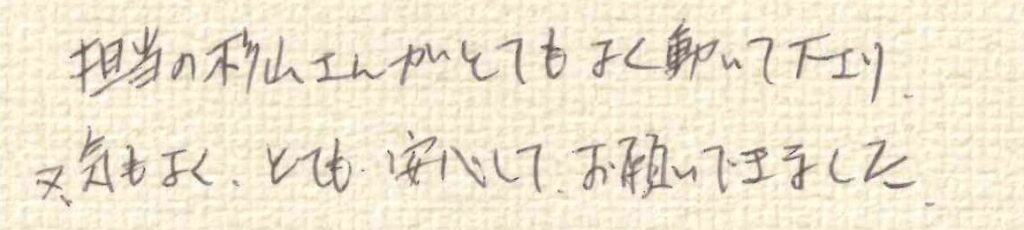 担当の杉山さんがとてもよく動いて下さり、
又、気もよく、とても安心して、お願いできました。